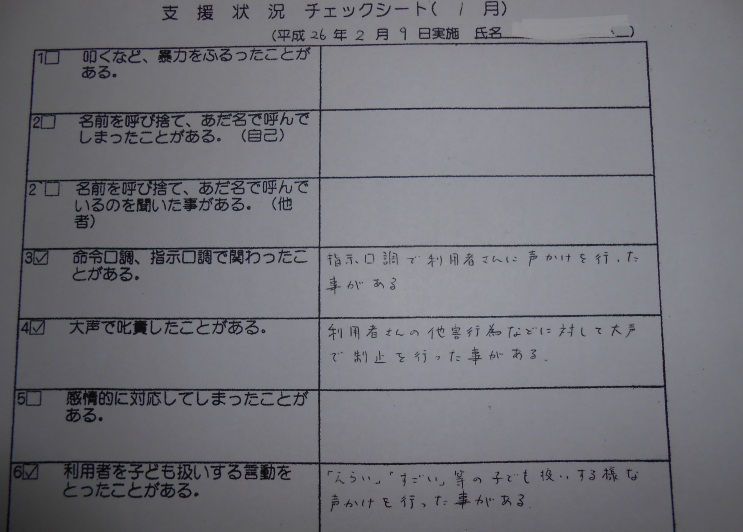 支 援 状 況 チェックシート( 1 月)
(平成 26 年 2 月 9 日実施 氏名 )
1□ 叩くなど、暴力をふるったことが
ある。
2□ 名前を呼び捨て、あだ名で呼んで
しまったことがある。(自己)
2'□ 名前を呼び捨て、あだ名で呼んで
いるのを聞いた事がある。(他
者)
3☑ 命令口調、指示口調で関わったこ
とがある。
指示口調で利用者さんに声かけを行った
事がある
4☑ 大声で叱責したことがある。
利用者さんの他害行為などに対して大声
で制止を行った事がある.
5□ 感情的に対応してしまったことが
ある。
6☑ 利用者を子ども扱いする言動を
とったことがある。
「えらい」「すごい」等の子ども扱いする様な
声かけを行った事がある.